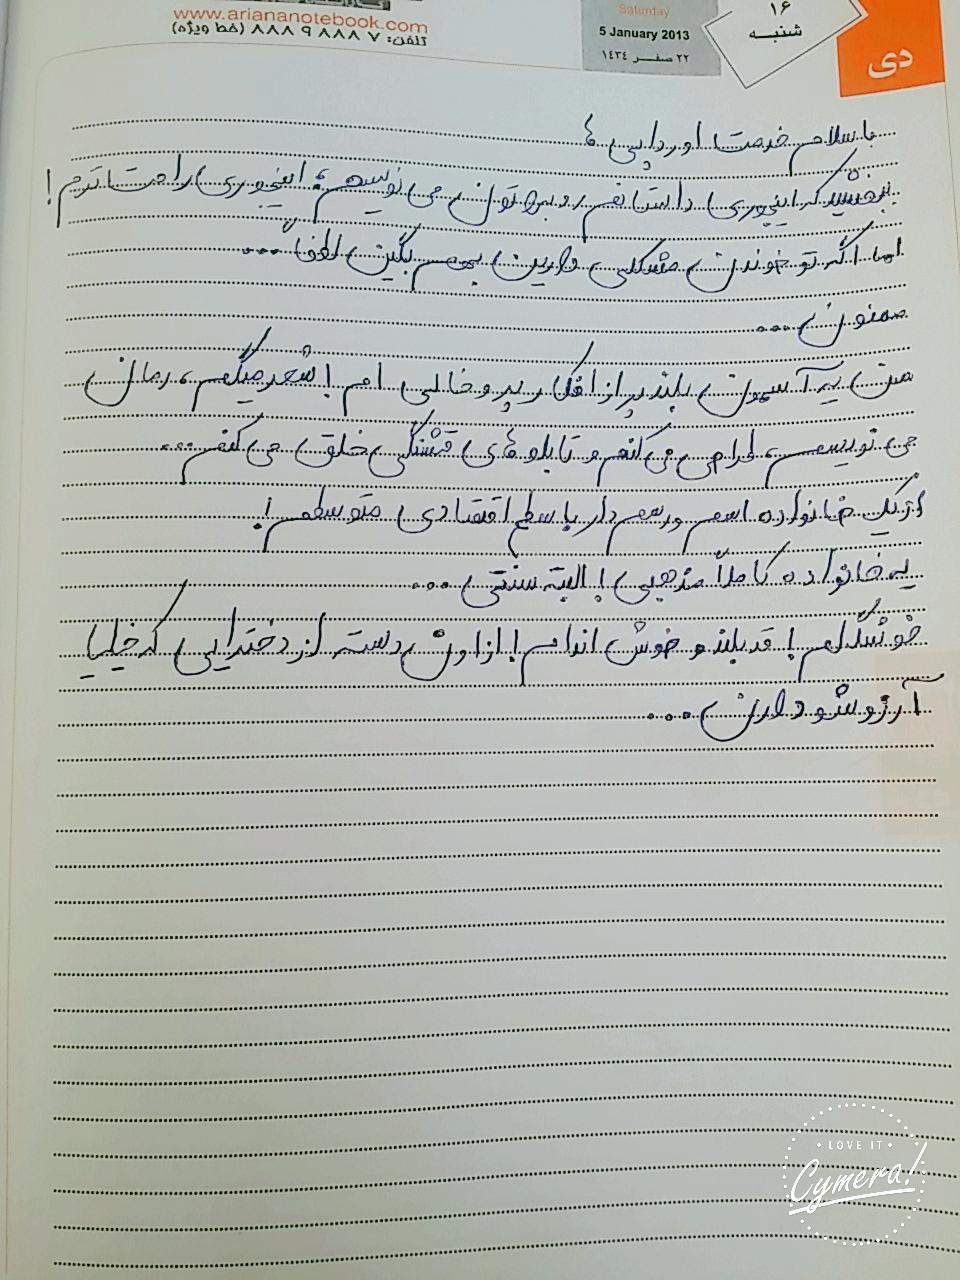 www.ariananotebook.com
تلفن: ۸۸۸ ۹ ۸۸۸ ۷ (خط ویژه)
Saturday
5 January 2013
۲۲ صفر ۱۴۳۴
۱۶
شنبه
دی
با سلام خدمت اوردلپی ها
ببخشید که اینجوری داستانم رو براتون می نویسم، اینجوری راحت ترم!
اما اگه تو خوندن مشکلی دارین بهم بگین لطفاً ...
ممنون ...
من یه آسمون بلند پر از افکار پر و خالی ام! شعر میگم، رمان
می نویسم، طراحی می کنم و تابلوهای قشنگی خلق می کنم ...
از یک خانواده اسم و رسم دار با سطح اقتصادی متوسطم!
یه خانواده کاملاً مذهبی! البته سنتی ...
خوشگلم! قد بلند و خوش اندام! از اون دسته از دخترایی که خیلیا
آرزوشو دارن ...
LOVE IT
Cymera!